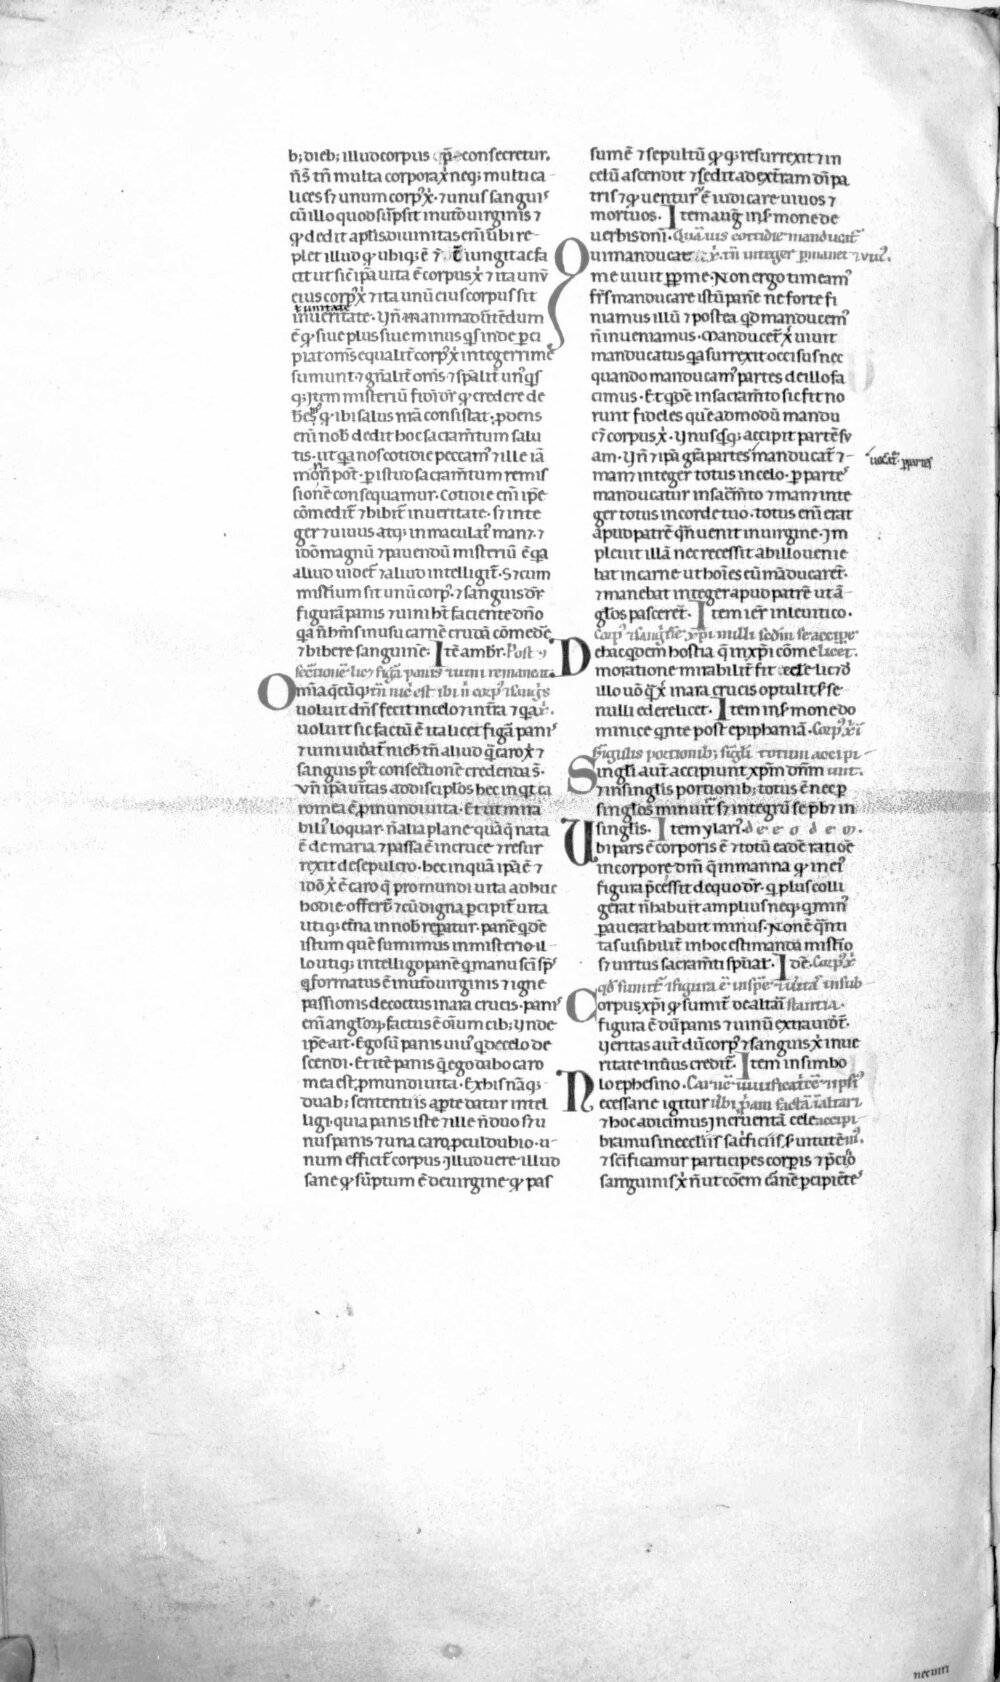 b; dieb; illud corpus p̄ consecretur.
ñs̄ tn̄ multa corpora x̄ neq; multi ca
lices s; unum corp⁹ x̄. ⁊ unus sanguis
cū illo quod sūpsit in utō uirginis ⁊
qđ dedit aplīs. diuinitas em̄ ūbi re
plet illud qđ ubiq; ē ⁊ ꝯiungit ac fa
cit ut sic̄ ipā una ē corpus x̄ ⁊ ita unū
eius corp⁹ x̄ ⁊ ita unū eius corpus sit
in ueritate. Vn̄ animaduertēdum
ē qđ siue plus siue minus qs̄ inde ꝑci
piat om̄s equalit̄ corp⁹ x̄ integerrime
sumunt ⁊ gn̄alit̄ om̄s ⁊ sp̄alit̄ un⁹qs
q; Item misteriū fidei dr̄ qđ credere de
bem⁹ qđ ibi salus nr̄a consistat. ꝓuidens
em̄ nob̄ dedit hoc sacram̄tum salu
tis. ut qa nos cotidie peccam⁹ ⁊ ille iā
mori n̄ pōt. ꝑ istud sacram̄tum remis
sionē consequamur. Cotidie em̄ ip̄e
cōmedit̄ ⁊ bibit̄ in ueritate. s; inte
ger ⁊ uiuus atq; inmaculat⁹ manet. ⁊
idō magnū ⁊ pauendū misteriū ē qa
aliud uidet̄ ⁊ aliud intelligit̄. Set cum
mistium sit unū corp⁹ ⁊ sanguis dr̄.
figurā panis ⁊ uini ht̄ faciente dn̄o
qa n̄ hm̄s in usu carnē crudā cōmedē
⁊ bibere sanguinē. Itē ambr̄. Post ꝯ
secr̄tionē lic; figā panis ⁊ uini remaneat.
Om̄ia q̄cūq; tn̄ nic̄ est ibi n̄ corp⁹ ⁊ sanḡs
uoluit dn̄s fecit in celo ⁊ in tr̄a ⁊ qa x̄.
uoluit sic factū ē ita licet figā panis
⁊ uini uideat̄ nich̄ tn̄ aliud q̄ caro x̄ ⁊
sanguis p̄t consecr̄tionē credenda s̄.
Vn̄ ipa uitas ad disciplos hec inqt̄ ca
ro mea ē ꝓ mundi uita. Et ut mira
bili⁹ loquar. n̄ alia plane quā q̄ nata
ē de maria ⁊ passa ē in cruce ⁊ resur
rexit de sepulcro. hec inquā ipa ē ⁊
idō x̄ ē caro q̄ pro mundi uita adhuc
hodie offert̄ ⁊ cū digna ꝑcipit̄ uita
utiq; etna in nob̄ reparatur. panē qdē
istum quē sumimus in misterio il
lo utiq; intelligo panē q manu sc̄i sps̄
q̄ formatus ē in utō uirginis ⁊ igne
passionis decoctus in ara crucis. panis
em̄ anglor̄ factus ē hōium cib; Vnde
ip̄e ait. Ego sū panis uiu⁹ q de celo de
scendi. Et itē panis q̄ ego dabo caro
mea est ꝓ mundi uita. Ex his nāq;
duab; sententiis aꝑte datur intel
ligi quia panis iste ⁊ ille n̄ duo s; u
nus panis ⁊ una caro ꝓcul dubio. u
num efficit̄ corpus. Illud uere illud
sane qđ sūptum ē de uirgine qđ pas
sum ē ⁊ sepultū qđq; resurrexit ⁊ in
celū ascendit ⁊ sedit ad dext̄ram dī pa
tris ⁊ qđ uentur⁹ ē iudicare uiuos ⁊
mortuos. Item auḡ in s̄mone de
uerbis dn̄i. Quāuis cottidie manducat̄
Qui manducat x̄. tn̄ integer ꝑmanet ⁊ viu⁹.
me uiuit ꝓpt̄ me. Non ergo timeam⁹
fr̄s manducare istū panē ne forte fi
niamus illū ⁊ postea qđ manducem⁹
n̄ inueniamus. Manducet̄ x̄ uiuit
manducatus qa surrexit occisus nec
quando manducam⁹ partes de illo fa
cimus. Et qdē in sacram̄to sic fit no
runt fideles quēadmodū mandu
cēt corpus x̄. Vnusqsq; accipit partē su
am. Vn̄ ⁊ ipa gr̄a partes manducat̄ ⁊
manet integer totus in celo. ꝑ partes
manducatur in sacr̄mto ⁊ manet inte
ger totus in corde tuo. totus em̄ erat
apud patrē qn̄ uenit in uirginē. Im
pleuit illā nec recessit ab illo uenie
bat in carnē ut hoīes eū māducarēt.
⁊ manebat integer apud patrē ut ā
glos pasceret̄. Item ier̄ in leuitico.
Corp⁹ ⁊ sang̅ xp̄i nulli secdm̄ se accipe
De hac qdem hostia q̄ in xp̄i cōme licet.
moratione mirabilit̄ fit edere licet d
illo uō q̄ x̄ in ara crucis optulit s̄ se
nulli edere licet. Item in s̄mone do
minice qn̄te post epiphaniā. Corp⁹ x̄i
singulis portionib; singli totum accipi
Singli aut̄ accipiunt xpm̄ dn̄m unt.
⁊ in singlis portionib; totus ē nec ꝑ
singlos minuit̄ s; integrū se p̄bet in
singlis. Item ylari⁹. de eodem.
Vbi pars ē corporis ē ⁊ totū eadē ratio ē
in corpore dn̄i q̄ in manna qđ in ei⁹
figura p̄cessit de quo dr̄. q plus colli
gerat n̄ habuit amplius neq; q min⁹
ꝑauerat habuit minus. Non ē qn̄ti
tas uisibilit̄ in hoc estimanda mist̄io
s; uirtus sacram̄ti sp̄ualis. Idē. Corp⁹ x̄
qđ sumit̄ ⁊ figura ē in spē ⁊ uitā in sub
Corpus xp̄i qđ sumit̄ de altari stantia.
figura ē dū panis ⁊ uinū extra uidet̄.
Veritas aut̄ dū corp⁹ ⁊ sanguis x̄ in ue
ritate int̄ius credit̄. Item in simbo
lo ephesino. Carnē uiuificatricē ⁊ ipsi⁹
Necessarie igitur ubi ꝓpam factā ī altari
⁊ hoc adicimus Incruentā cele accipi
bramus in ecclīis sac̄ficiis s̄uitutē m⁹.
⁊ sc̄ificamur participes corpis ⁊ p̄ciō
sanguinis x̄ n̄ ut cōem carnē ꝑcipiētes
necum